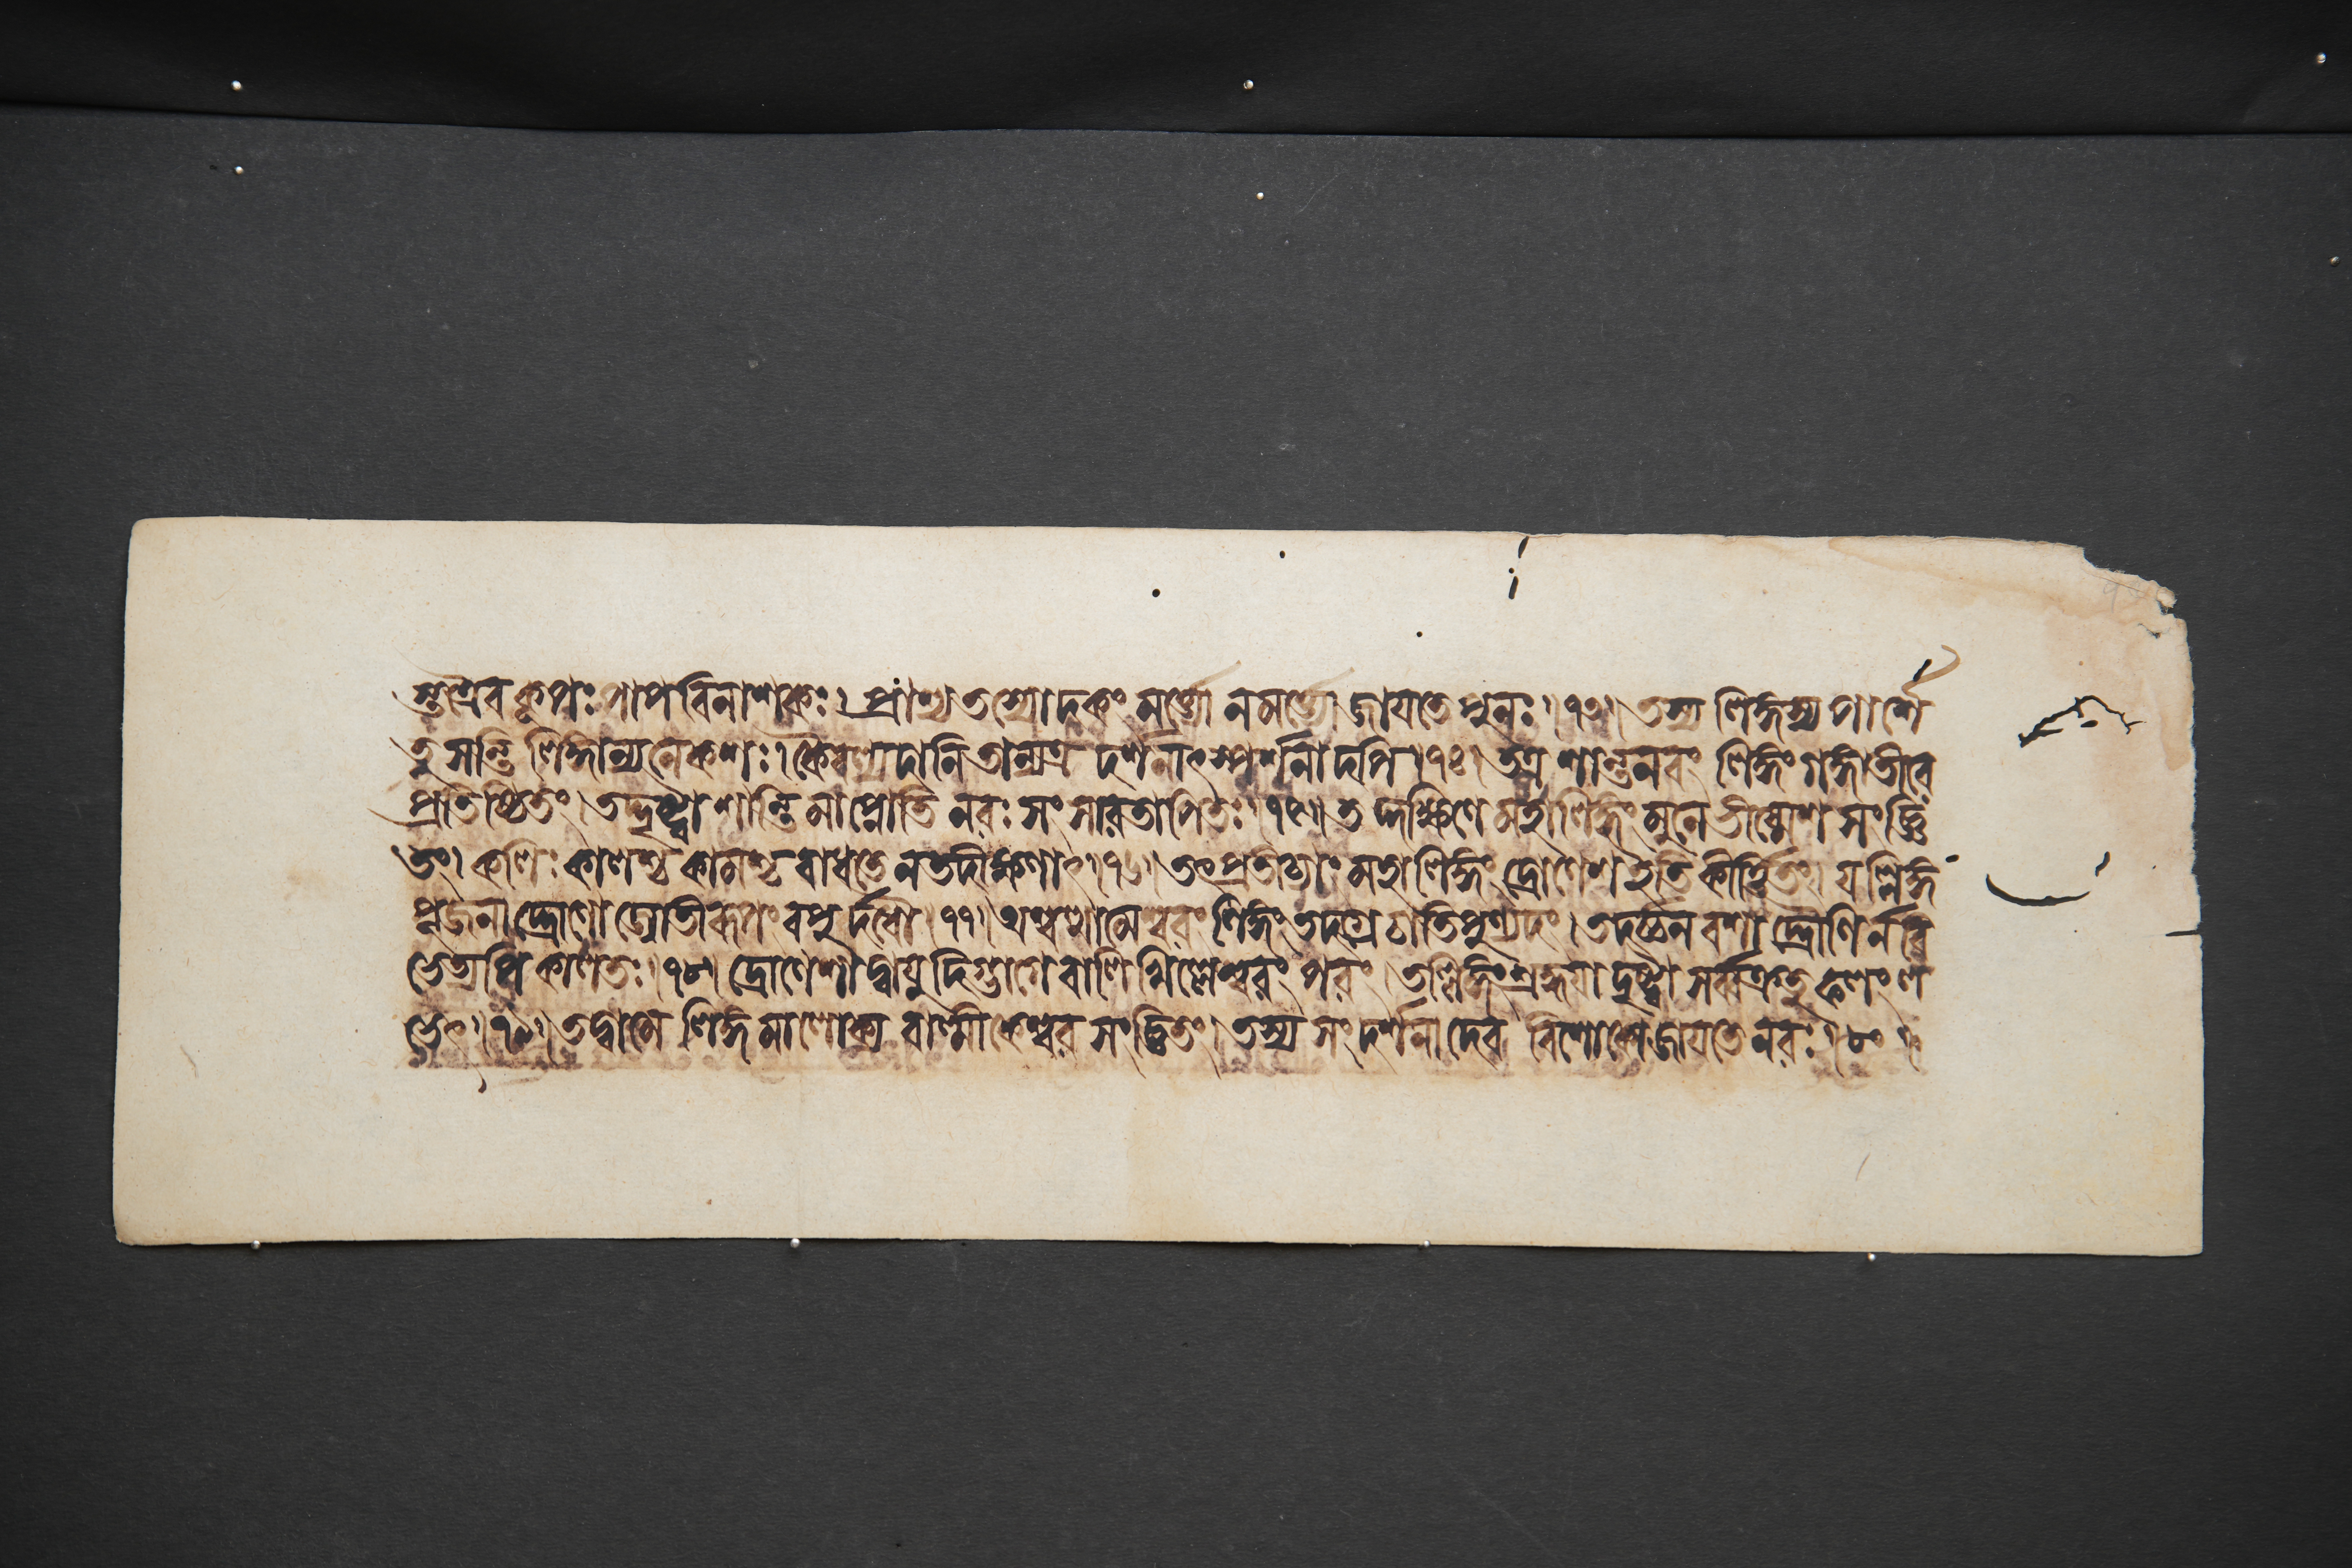 স্তত্রৈব কূপঃ পাপবিনাশকঃ। প্রাশ্য তস্যোদকং মর্ত্ত্যো ন মর্ত্ত্যো জায়তে পুনঃ।৭৩। তস্য লিঙ্গস্য পার্শ্বে
তু সন্তি লিঙ্গান্যনেকশঃ। কৈবল্যদানি তান্যত্র দর্শনাৎ স্পর্শনাদপি।৭৪। তত্র শান্তনবং লিঙ্গং গঙ্গাতীরে
প্রতিষ্ঠিতং। তদ্দৃষ্ট্বা শান্তিমাপ্নোতি নরঃ সংসারতাপিতঃ।৭৫। তদ্দক্ষিণে মহালিঙ্গং মুনে ভীষ্মেশ সংজ্ঞি
তং। কলিঃ কালশ্চ কামশ্চ বাধতে ন তদীক্ষণাৎ।৭৬। তৎপ্রতীচ্যাং মহালিঙ্গং দ্রোণেশ ইতি কীর্ত্তিতং। যল্লিঙ্গ
পূজনাদ্দ্রোণো জ্যোতীরূপং বপুর্দধৌ।৭৭। অশ্বত্থামেশ্বরং লিঙ্গং তদগ্রে চাতিপুণ্যদং। তদর্চ্চনবশাদ্দ্রৌণির্নবি
ভেত্যপি কালতঃ।৭৮। দ্রোণেশাদ্বায়ুদিগ্ভাগে বালিখিল্লেশ্বরং পরং। তল্লিঙ্গংশ্রদ্ধয়া দৃষ্ট্বা সর্ব্বক্রতু ফলং ল
ভেৎ।৭৯। তদ্বামে লিঙ্গমালোক্য বাল্মীকেশ্বর সংজ্ঞিতং। তস্য সংদর্শনাদেব বিশোকো জায়তে নরঃ।৮০।